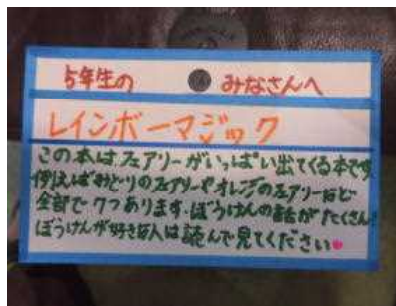 5年生の みなさんへ
レインボーマジック
この本はフェアリーがいっぱい出てくる本です
例えばみどりのフェアリーやオレンジのフェアリーなど
全部で7つあります。ぼうけんの話がたくさん!
ぼうけんが好きな人は読んで見てください